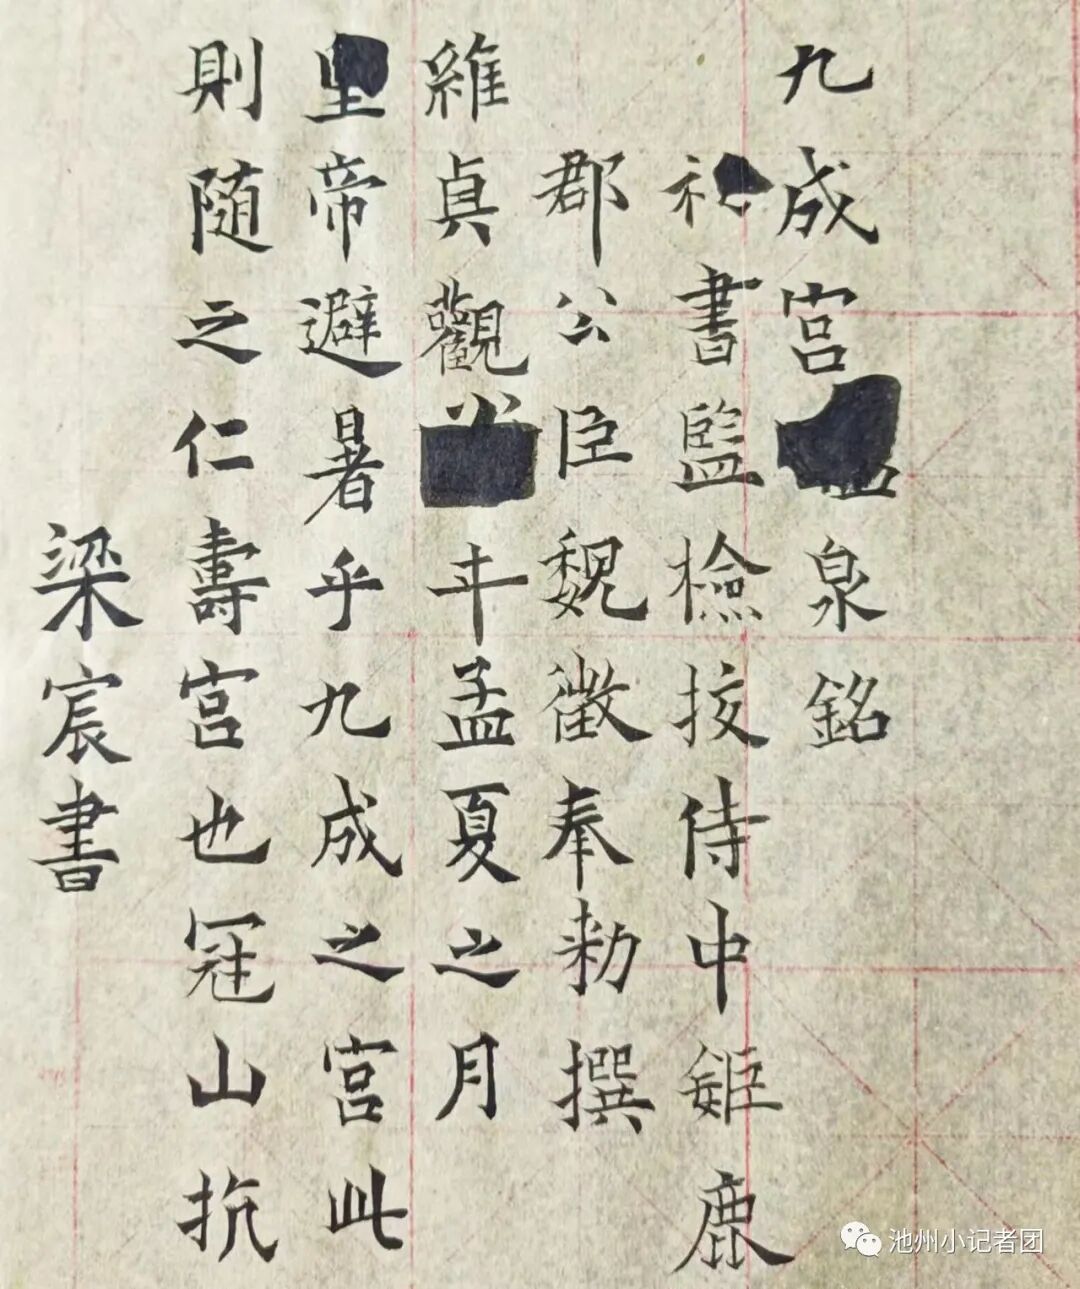 九成宮泉銘
書監檢挍侍中鉅鹿
郡公臣魏徵奉勑撰
維貞觀年孟夏之月
帝避暑乎九成之宮此
則随之仁壽宮也冠山抗
梁宸書
池州小记者团